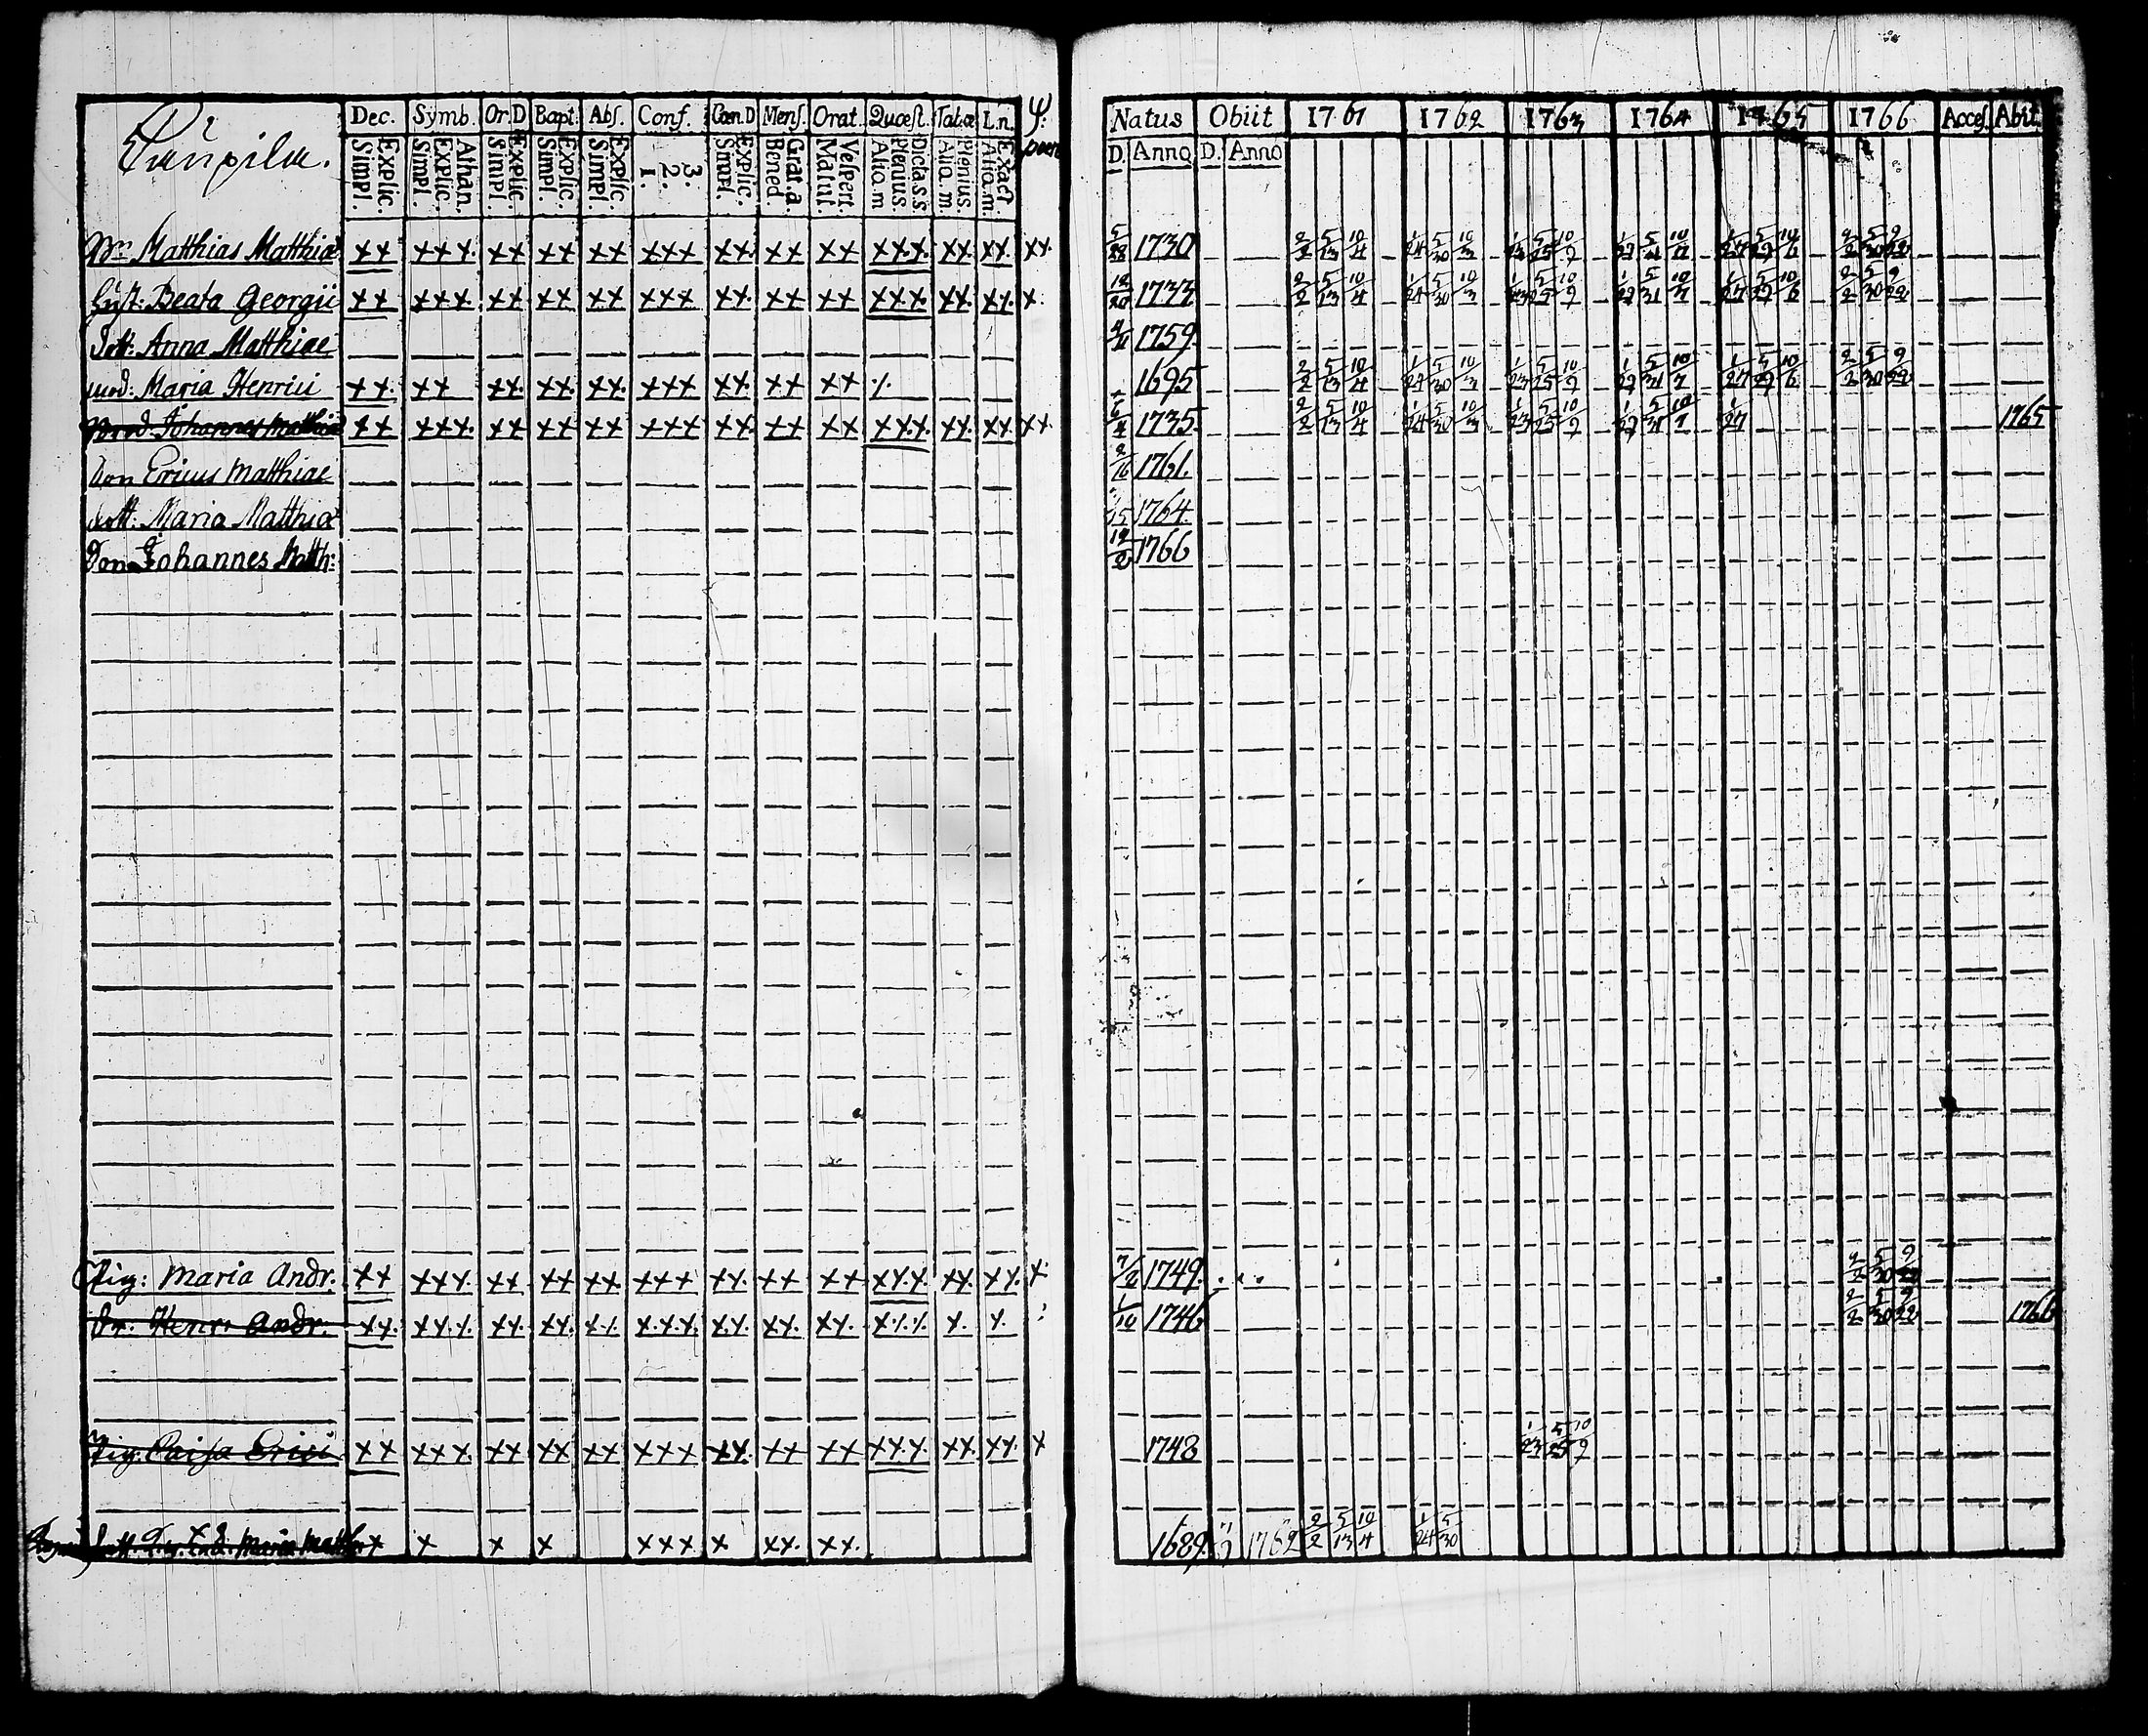 Dec. Symb. Or.D Bapt. Abſ. Conf. Cœn.D Menſ. Orat. Quœſt. Tab.œ L.n.
Explic. Simpl. Athan. Explic. Simpl. Explic. Simpl. Explic. Simpl. Explic. Simpl. 3. 2. 1. Explic. Simpl. Grat.a Bened. Veſpert. Matut. Dicta.s.s. Plenius. Alia.m Plenius. Alia.m. Exact. Alia.m.
Matthias Matthiæ xx xxx xx xx xx xxx xx. xx xx xxx. xx xx. xx.
Huſt: Beata Georgii xx xxx xx xx xx xxx xx. xx xx xxx. xx. xx. x.
Dott: Anna Matthiae
mod: Maria Henrici xx. xx xx. xx. xx. xxx xx. xx xx ٪
Johannes Matthiæ xx xxx. xx xx xx xxx xx. xx xx xxx. xx. xx xx.
Son Ericus Matthiae
dott: Maria Matthiæ
Son Johannes Matth:
Pig: Maria Andr. xx xxx. xx xx xx xxx xx. xx xx xx.x. xx. xx. x.
dr. Henr: Andr: xx. xx.x. xx. xx. x.x. x.x.x. x.x. xx. xx. x.x.x. x. x.
Pig. Caisa Erici xx xxx xx xx xx xxx xx. xx xx xx.x. xx. xx. x
Maria Matth. x x x x xxx x xx. xx.
Natus Obiit 1761 1762 1763 1764 1765 1766 Acceſ. Abit.
D. Anno D. Anno
5/28 1730 2/2 5/13 10/4 1/24 5/30 10/3 1/23 5/25 10/9 1/27 5/31 10/7 1/27 5/29 10/6 2/2 5/30 9/22
12/20 1733 2/2 5/13 10/4 1/24 5/30 10/3 1/23 5/25 10/9 1/27 5/31 10/7 1/27 5/29 10/6 2/2 5/30 9/22
1759.
1695 2/2 5/13 10/4 1/24 5/30 10/3 1/23 5/25 10/9 1/27 5/31 10/7 1/27 5/29 10/6 2/2 5/30 9/22
1735 2/2 5/13 10/4 1/24 5/30 10/3 1/23 5/25 10/9 1/27 5/31 10/7 1/27 1765
2/16 1761.
1764.
12/2 1766
7/2 1749. 2/2 5/30 9/22
1/10 1746 2/2 5/30 9/22 1766
1748 1/23 5/25 10/9
1689. 1762 2/2 5/13 10/4 1/24 5/30